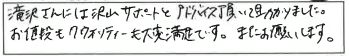 滝沢さんには沢山サポートとアドバイス頂いて助かりました。
お値段もクウォリティーも大変満足です。またお願いします。